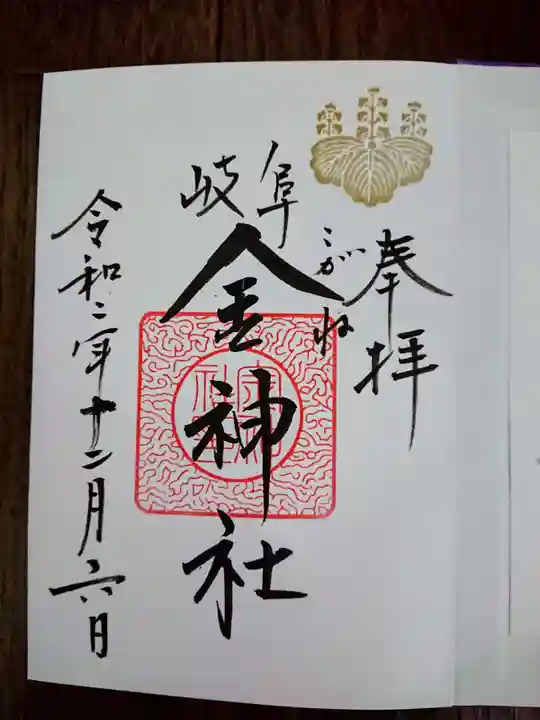 奉拝
岐阜
こがね
金神社
令和二年十二月六日